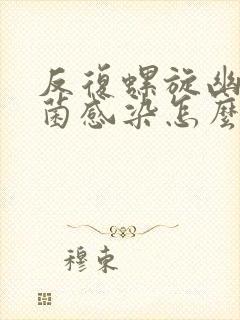 反復螺旋幽
菌感染怎麼
穆東